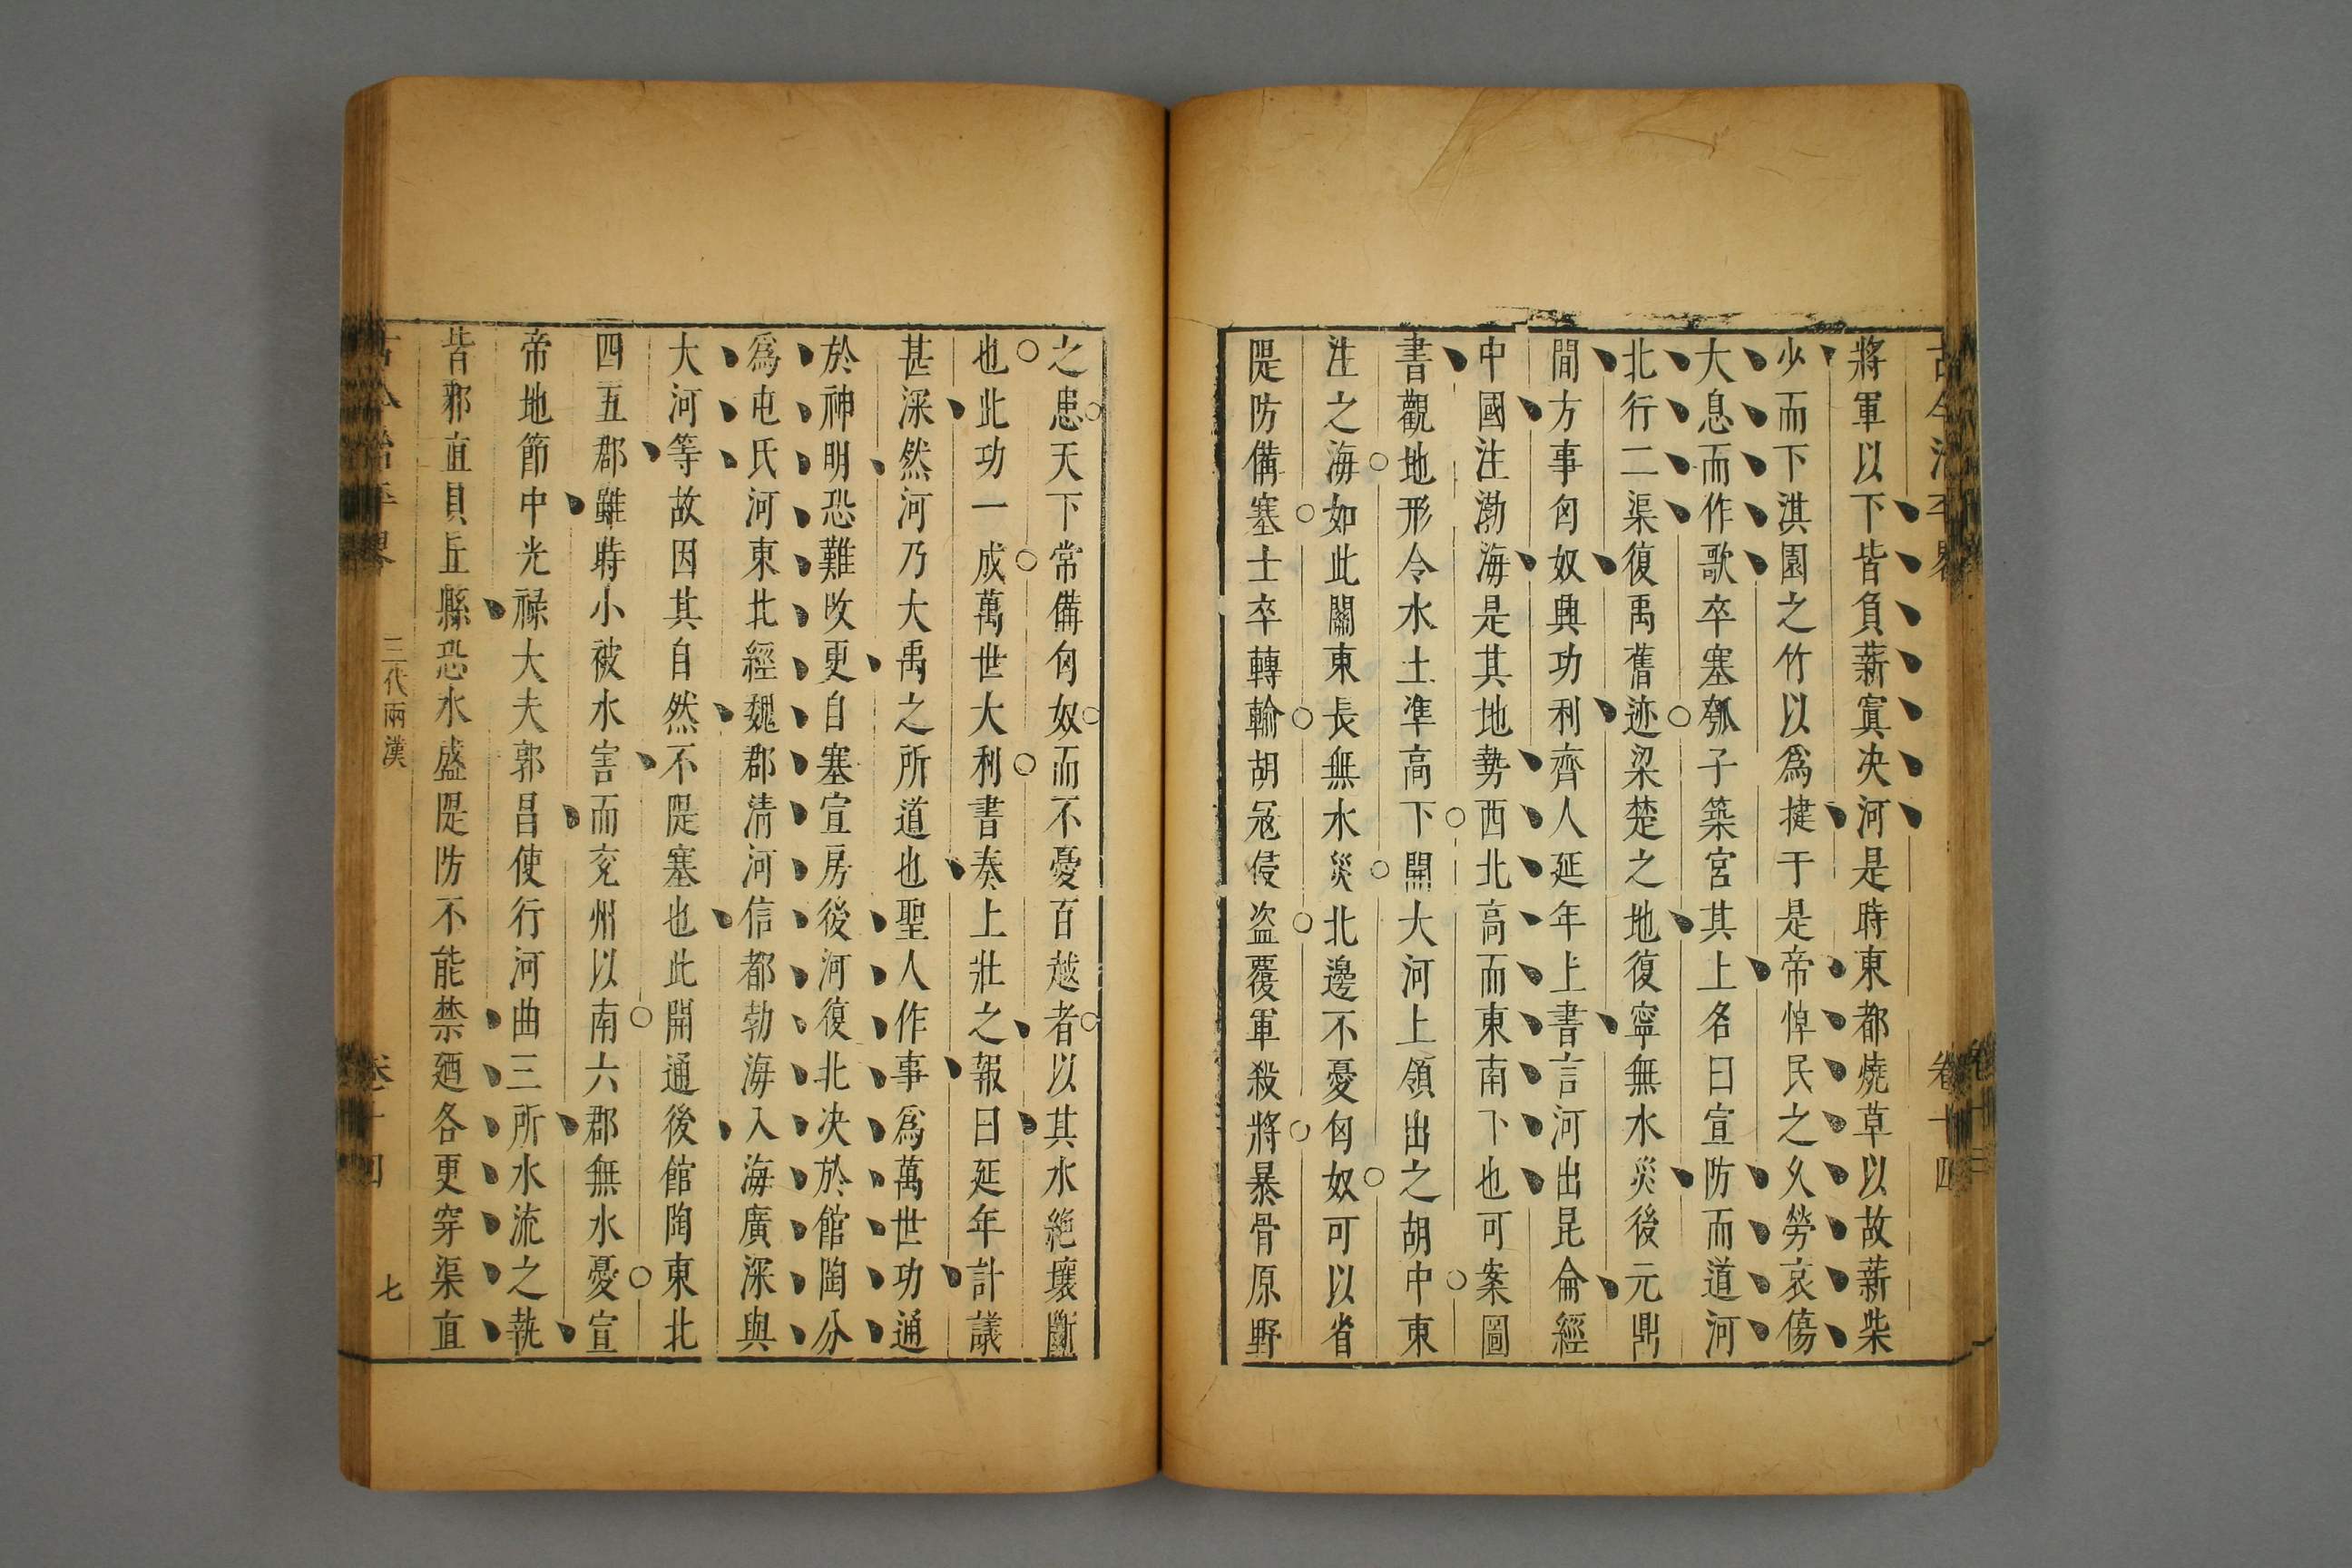 將軍以下皆負薪窴决河是時東都燒草以故薪柴
少而下淇園之竹以爲揵于是帝悼民之乆勞哀傷
大息而作歌卒塞瓠子築宮其上名曰宣防而道河
北行二渠復禹舊迹梁楚之地復寧無水災後元鼎
間方事匈奴興功利齊人延年上書言河出昆侖經
中國注渤海是其地勢西北高而東南下也可案圖
書觀地形令水土準高下開大河上領出之胡中東
注之海如此關東長無水災北邊不憂匈奴可以省
隄防備塞士卒轉輸胡冦侵盗覆軍殺將暴骨原野
之患天下常備匈奴而不憂百越者以其水絶壤斷
也此功一成萬世大利書奏上壯之報曰延年計議
甚深然河乃大禹之所道也聖人作事爲萬世功通
於神明恐難攺更自塞宣房後河復北决於館陶分
爲屯氏河東北經魏郡清河信都勃海入海廣深與
大河等故因其自然不隄塞也此開通後館陶東北
四五郡雖時小被水害而兖州以南六郡無水憂宣
帝地節中光禄大夫郭昌使行河曲三所水流之執
皆邪直貝丘縣恐水盛隄防不能禁廼各更穿渠直
三代兩漢
七